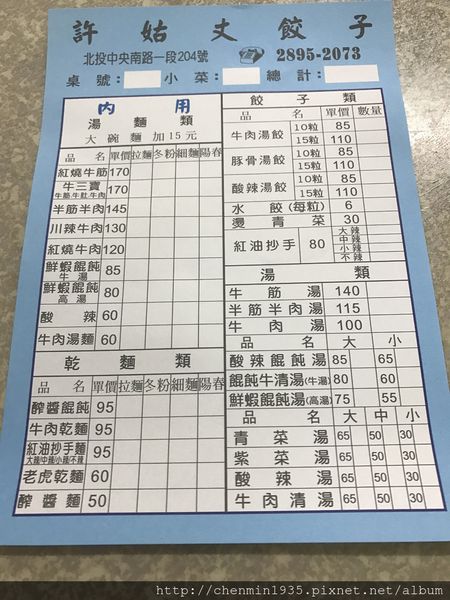 許姑丈餃子
北投中央南路一段204號 2895-2073
桌號： 小菜： 總計：
內用
湯麵類
大碗麵加15元
品名 單價 拉麵 冬粉 細麵 陽春
紅燒牛筋 170
牛三寶 牛筋.牛肚.牛肉 170
半筋半肉 145
川辣牛肉 130
紅燒牛肉 120
鮮蝦餛飩 牛湯 85
鮮蝦餛飩 高湯 80
酸辣 60
牛肉湯麵 60
乾麵類
品名 單價 拉麵 冬粉 細麵 陽春
醡醬餛飩 95
牛肉乾麵 95
紅油抄手麵 大辣/中辣/小辣/不辣 95
老虎乾麵 60
醡醬麵 50
餃子類
品名 單價 數量
牛肉湯餃 10粒 85
15粒 110
豚骨湯餃 10粒 85
15粒 110
酸辣湯餃 10粒 85
15粒 110
水餃(每粒) 6
燙青菜 30
紅油抄手 80 大辣
中辣
小辣
不辣
湯類
牛筋湯 140
半筋半肉湯 115
牛肉湯 100
品名 大 小
酸辣餛飩湯 85 65
餛飩牛清湯(牛湯) 80 60
鮮蝦餛飩湯(高湯) 75 55
品名 大 中 小
青菜湯 65 50 30
紫菜湯 65 50 30
酸辣湯 65 50 30
牛肉清湯 65 50 30
http://chenmin1935.pixnet.net/album